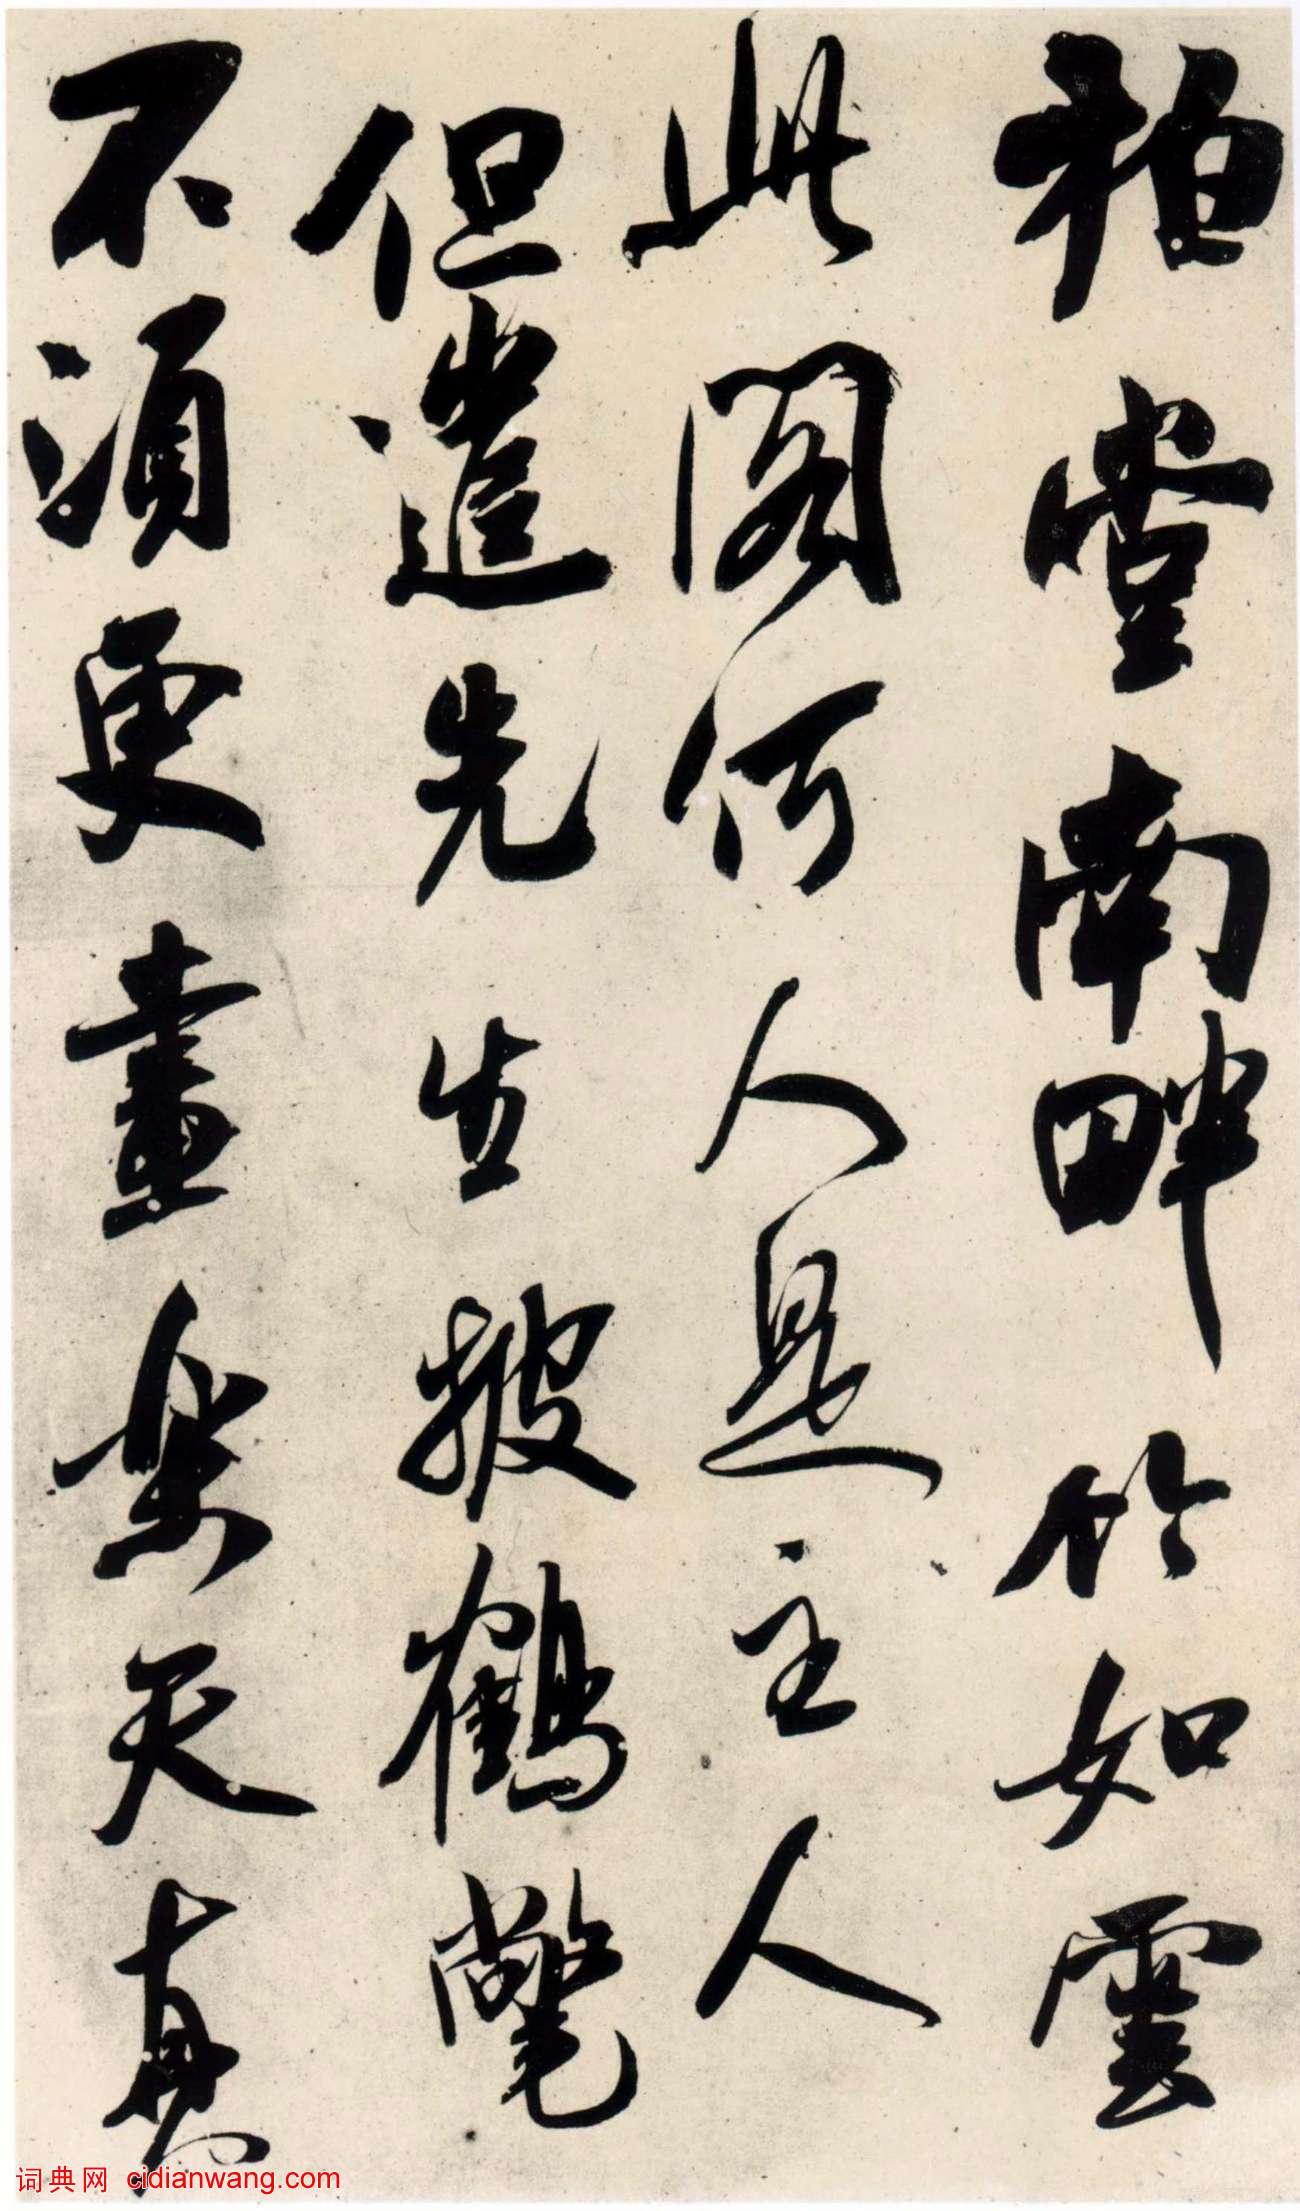 柏堂南畔竹如雲
此閣何人是主人
但遣先生披鶴氅
不須更畫樂天真
词典网 cidianwang.com